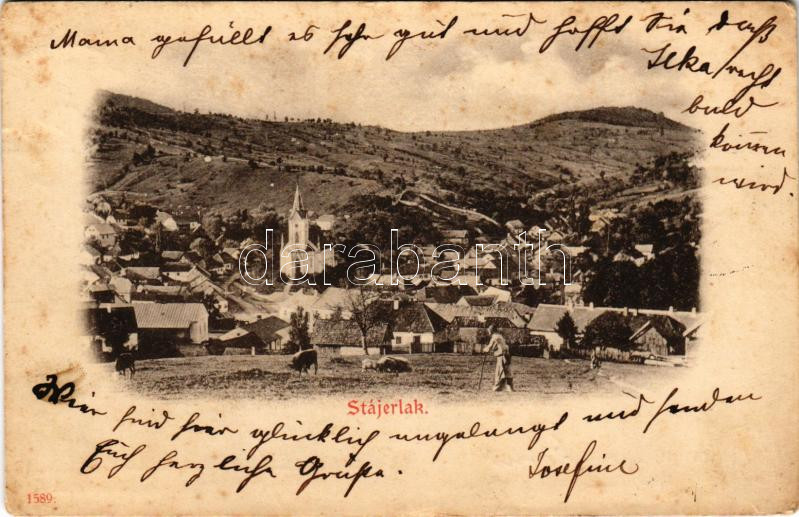 Mama gefüllt es sehr gut und hofft Sie daß
Ilka recht
bald
kommen
wird.
darabanth.com
Stájerlak.
Wir sind hier glücklich angelangt und senden
Euch herzliche Grüße.
Josefine
1589.